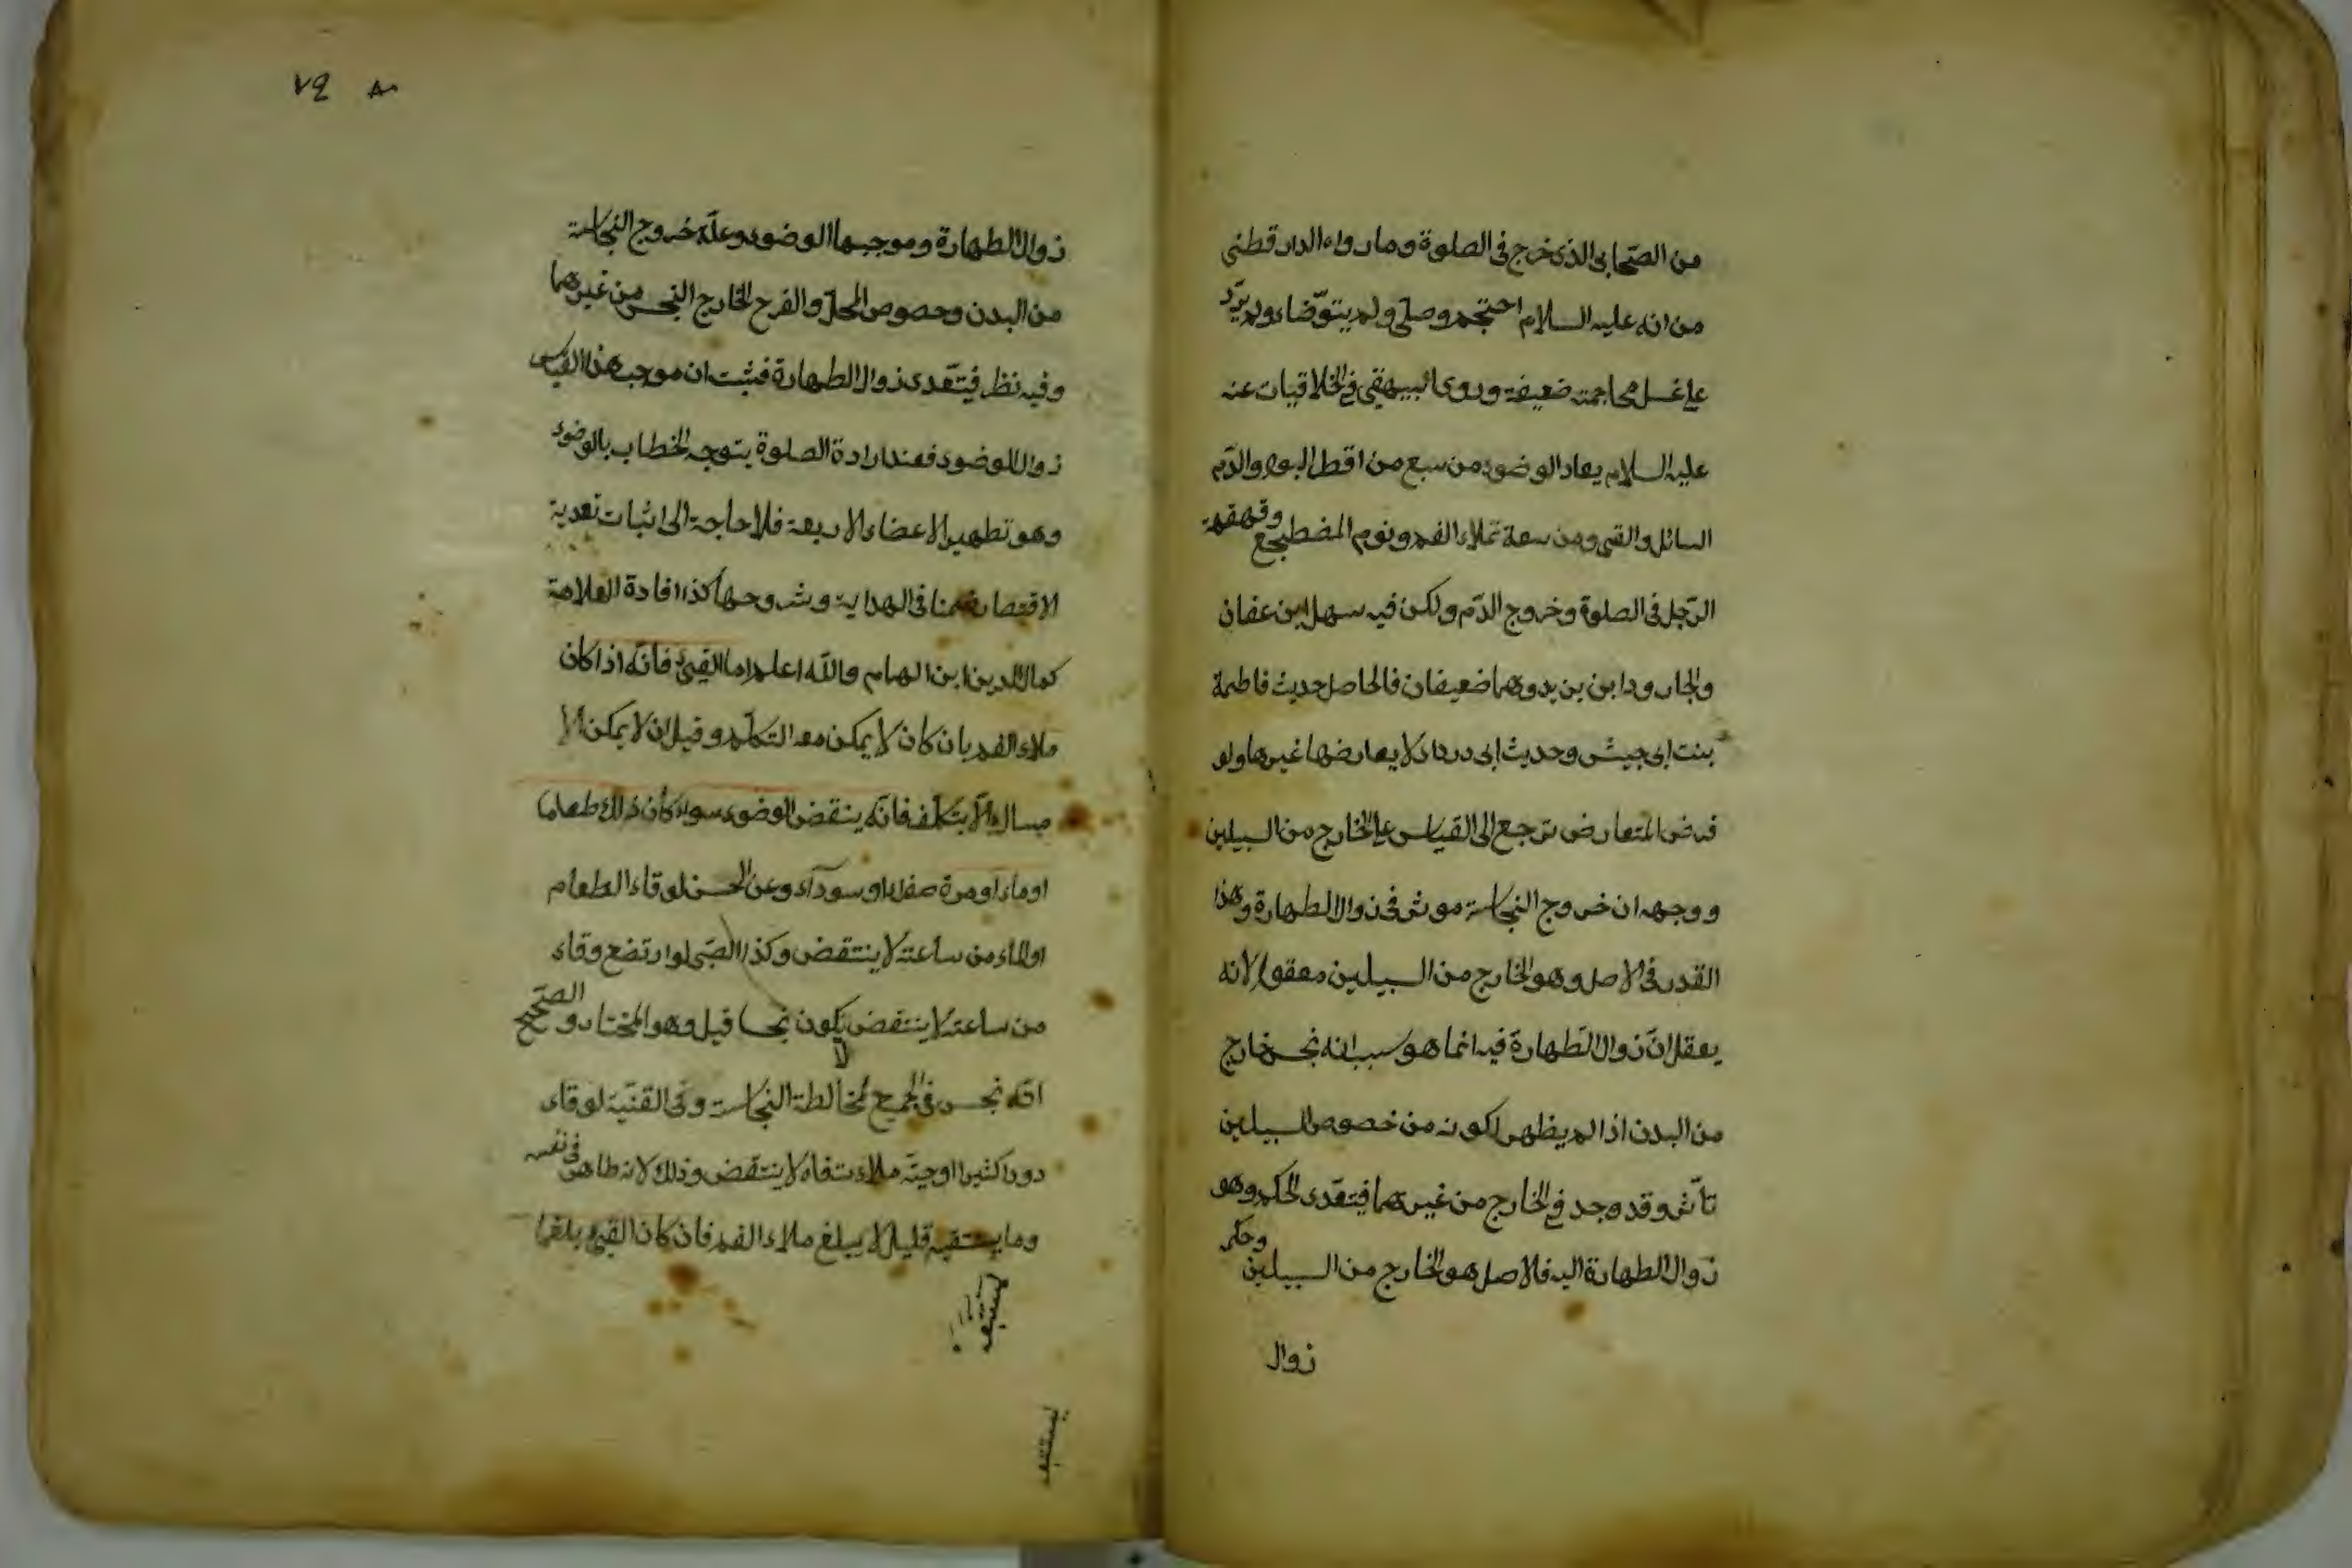 من الصحابى الذى خرج فى الصلوة وما رواه الدار قطنى
من انه عليه السلام احتجم وصلى ولم يتوضاء ولم يزد
على غسل محاجمته ضعيفة وروى البيهقى فى الخلافيات عنه
عليه السلام يعاد الوضوء من سبع من اقطار البول والدم
السائل والقئ ومن سعة تملاء الفم ونوم المضطجع وقهقهة
الرجل فى الصلوة وخروج الدم ولكن فيه سهل ابن عفان
والجارود ابن يزيد وهما ضعيفان فالحاصل حديث فاطمة
بنت ابى حبيش وحديث ابى درداء لا يعارضها غيرها ولو
فرض التعارض ترجع الى القياس على الخارج من السبيلين
ووجهه ان خروج النجاسة موثر فى زوال الطهارة وهذا
القدر فى الاصل وهو الخارج من السبيلين معقول لانه
يعقل ان زوال الطهارة فيه انما هو سبب انه نجس خارج
من البدن اذا لم يظهر لكونه من خصوص السبيلين
تأثير وقد وجد فى الخارج من غيرهما فيتعدى الحكم وهو
زوال الطهارة اليه فالاصل هو الخارج من السبيلين وحكم
زوال
٧٩ ٨٠
زوال الطهارة وموجبها الوضوء وعلة خروج النجاسة
من البدن وخصوص المحل والفرع الخارج النجس من غيرهما
وفيه نظر فيتعدى زوال الطهارة فيثبت ان موجب هذا القياس
زوال الوضوء فعند ارادة الصلوة يتوجه الخطاب بالوضوء
وهو تطهير الاعضاء الاربعة فلا حاجة الى اثبات تعدية
الاقتصار ضمنا فى الهداية وشروحها كذا افادة العلامة
كمال الدين ابن الهمام والله اعلم اما القئ فانه اذا كان
ملاء الفم بان كان لا يمكن معه التكلم وقيل ان لا يمكن الا
مساكه الا بتكلف فانه ينقض الوضوء سواء كان ذلك طعاما
او ماء او مرة صفراء او سوداء وعن الحسن لو قاء الطعام
او الماء من ساعته لا ينتقض وكذا الصبى لو ارتضع وقاء
من ساعته لا ينتقض لا يكون نجسا قيل وهو المختار والصحيح
انه نجس فى الجميع لمخالطة النجاسة وفى القنية لو قاء
دودا كثيرا او حية ملاءت فاه لا ينتقض وذلك لانه طاهر فى نفسه
وما يستتبعه قليل لا يبلغ ملاء الفم فان كان القئ بلغما